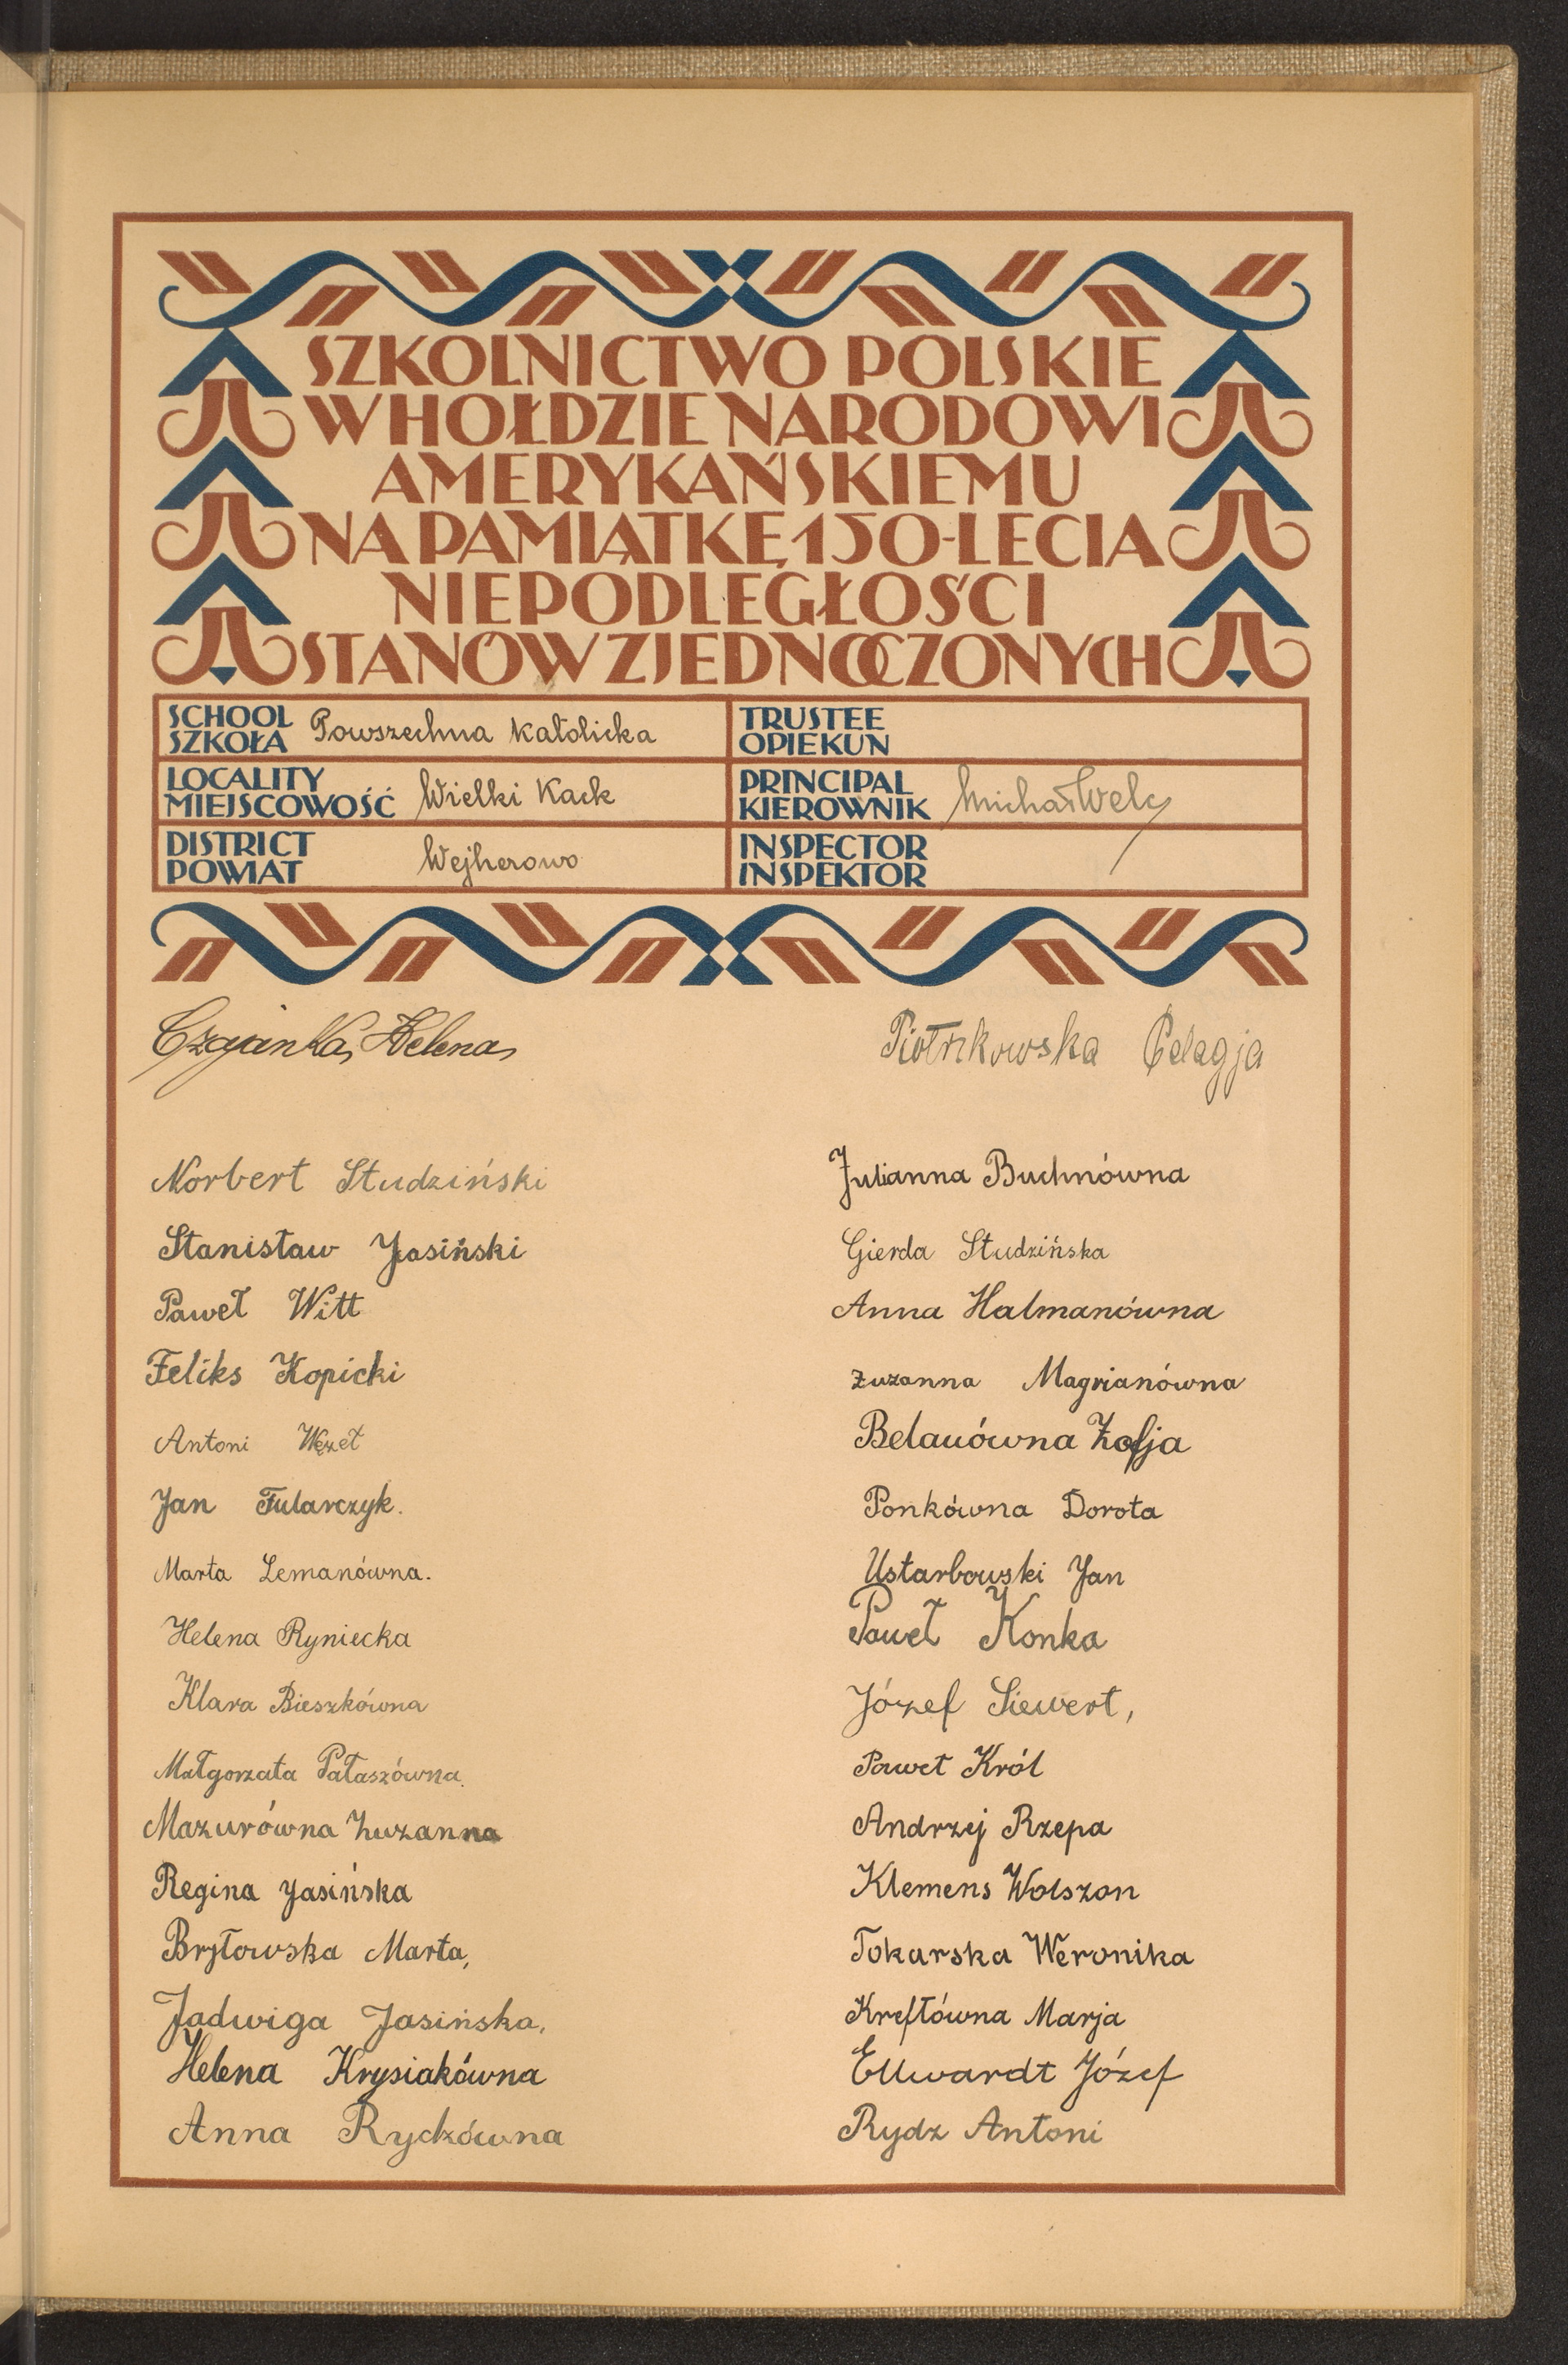 SZKOLNICTWO POLSKIE
W HOŁDZIE NARODOWI
AMERYKAŃSKIEMU
NA PAMIĄTKĘ 150-LECIA
NIEPODLEGŁOŚCI
STANÓW ZJEDNOCZONYCH
SCHOOL
SZKOŁA Powszechna Katolicka
TRUSTEE
OPIEKUN
LOCALITY
MIEJSCOWOŚĆ Wielki Kack
PRINCIPAL
KIEROWNIK Michał Wely
DISTRICT
POWIAT Wejherowo
INSPECTOR
INSPEKTOR
Helena
Piotrkowska Pelagja
Norbert Studziński
Stanisław Jasiński
Paweł Witt
Feliks Kopicki
Antoni Węzeł
Jan Fularczyk.
Marta Lemanówna.
Helena Ryniecka
Klara Bieszkówna
Małgorzata Pałaszówna.
Mazurówna Zuzanna
Regina Jasińska
Bryłowska Marta,
Jadwiga Jasińska,
Helena Krysiakówna
Anna Ryckówna
Julianna Buchnówna
Gierda Studzińska
Anna Halmanówna
Zuzanna Magrianówna
Belauówna Zofja
Ponkówna Dorota
Ustarbowski Jan
Paweł Konka
Józef Siewert,
Paweł Król
Andrzej Rzepa
Klemens Wolszon
Tokarska Weronika
Kreftówna Marja
Ellwardt Józef
Rydz Antoni